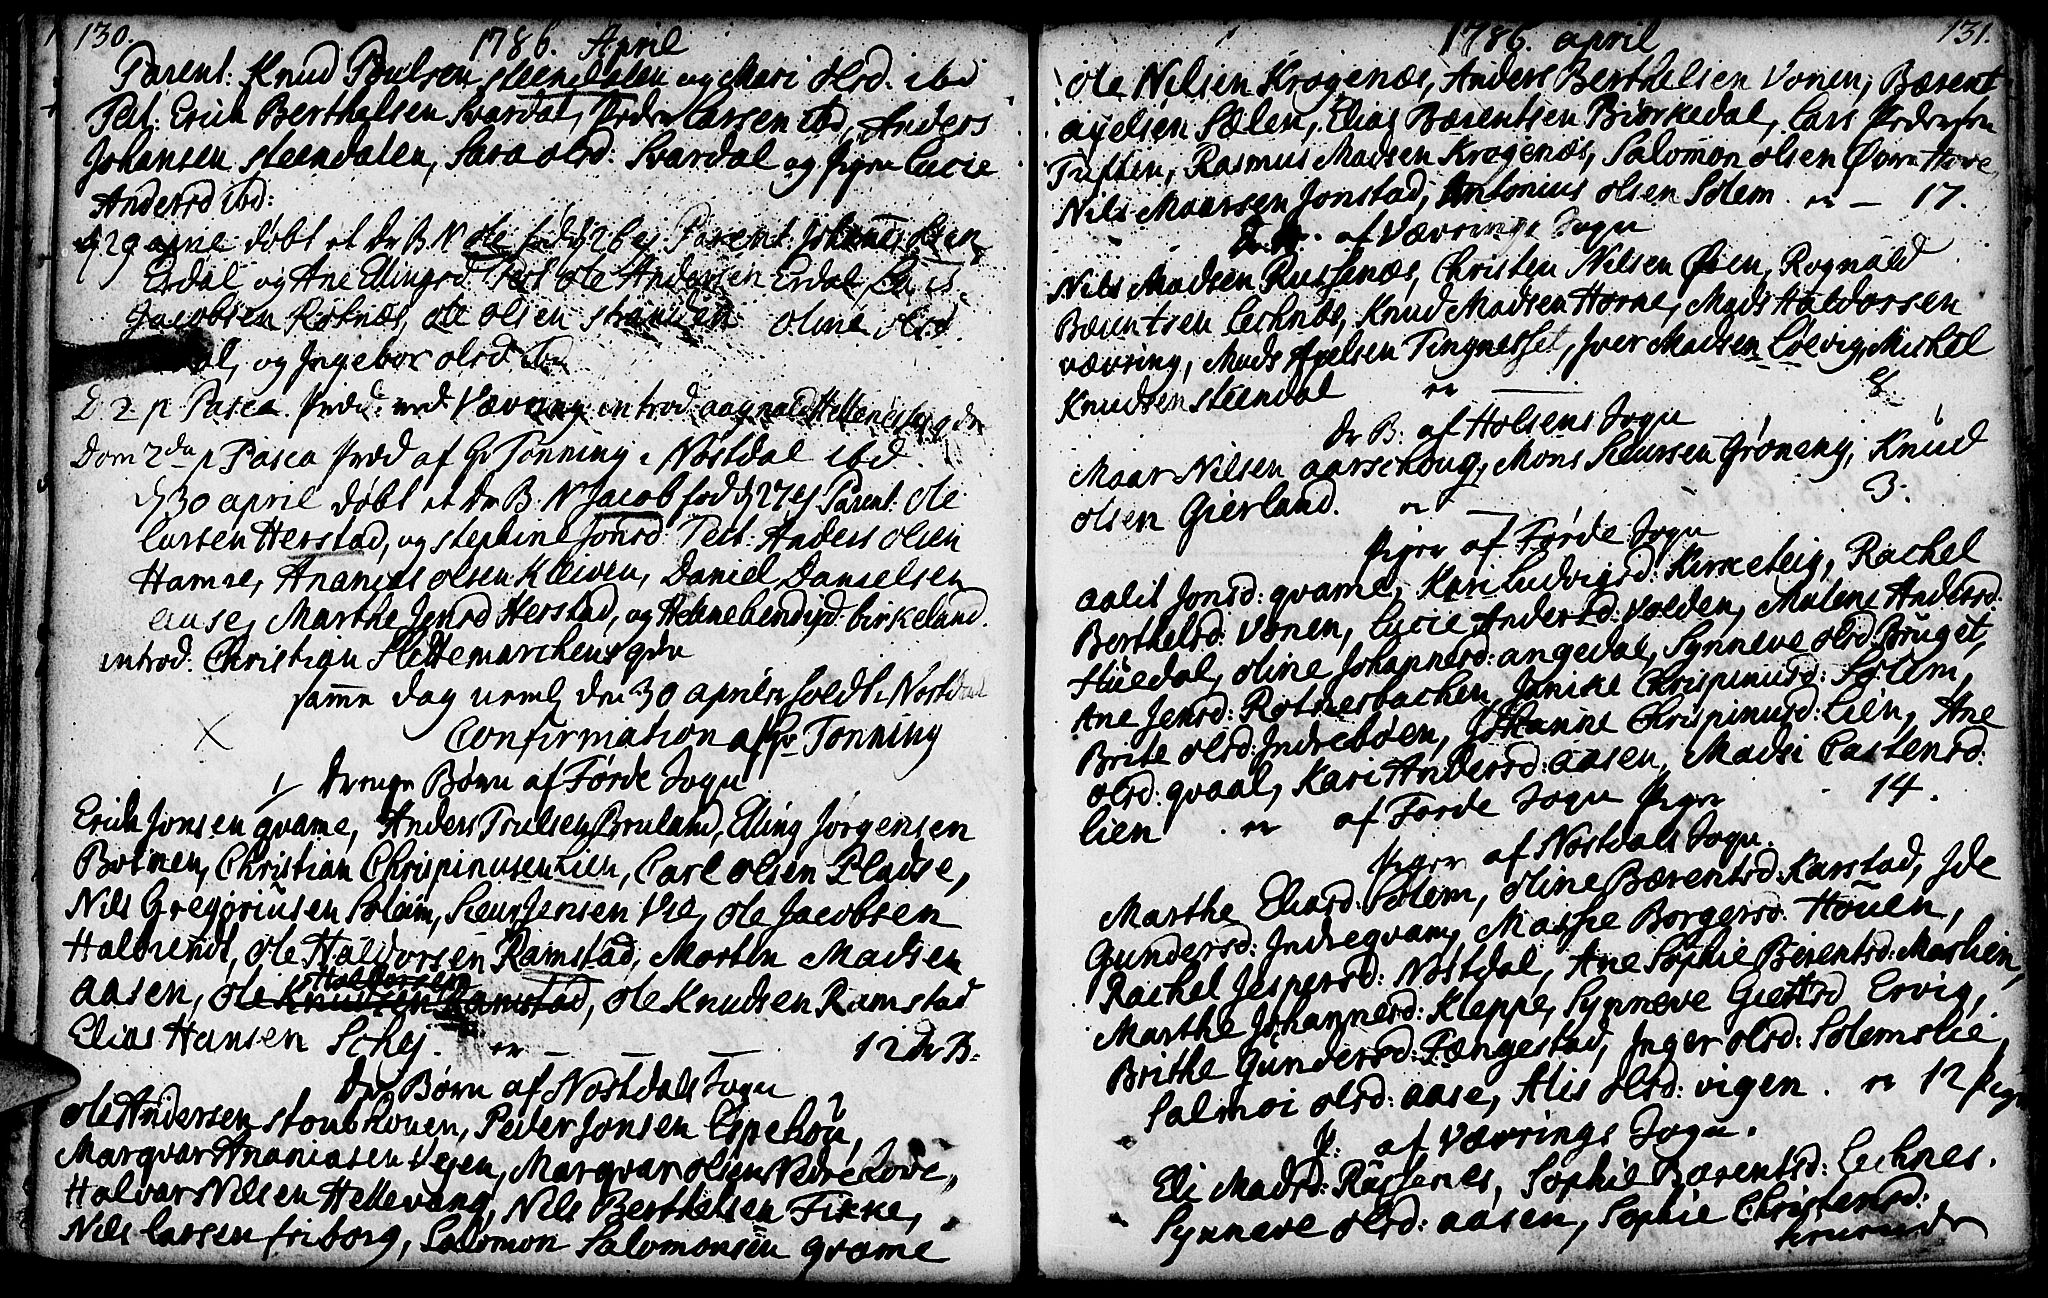 130.
1786. April
Parent: Knud Poulsen steendalen og Mari olsd. ibd
Test: Erich Berthelsen Svardal, Peder Larssen ibd, Anders
Johansen steendalen, Sara olsd: Svardal og pigen Lucie
Andersd ibd:
d 29 april døbt et dr B N ole fød d 26 ej Parent: Johanes olsen
Erdal og Ane Ellingsd Test ole Andersen Erdal,
Jacobsen Roknæs, ole olsen stranden oline olsd
dal, og Ingebor olsd ibd
D 2 p Pasca. Præd: ved Vævring introd aagnald Hellenes
Dom 2da p Pasca Præd af Hr Tonning i Nøstdal ibd.
d 30 april døbt et dr B. N Jacob fød d 27 ej Parent: ole
Larsen Herstad, og stephine Jonsd Test: Anders olsen
Hamre, Ananias olsen Kleiven, Daniel Danielsen
aase, Marthe Jensd Herstad, og Helene bendixd: birkeland.
introd: Christian Slettemarchens qde
samme dag neml den 30 april er holdt i Nøstdal
Confirmation af Hr Tonning
Drenge Børn af Førde Sogn
Erich Jonsen qvame, Anders Troelsen Bruland, Elling Jørgensen
Botnen, Christian Chrispinusen Lien, Carl olsen Pladse,
Nils Gregoriusen Solem, Siur Jensen Vie, ole Jacobsen
Halbrendt, ole Haldorsen Ramstad, Morten Madsen
aasen, ole Knudsen Ramstad, ole Knudsen Ramstad
Haldorsen
Elias Hansen Schej. er — — — 12 dr B.
Dr Børn af Nøstdals Sogn
ole Andersen stoubhouen, Peder Jonsen Espehou,
Marqvar Ananiasen Vejen, Marqvar olsen Nedrehove,
Halvar Nilsen Hellevang, Nils Berthelsen Fikke,
Nils Larsen friborg, Salomon Salomonsen qvame
131.
1786. april
ole Nilsen Krogenæs, Anders Berthelsen Vonen, Bærent
axelsen Sælen, Elias Bærentsen Biørkedal, Lars Pedersen
Tuften, Rasmus Madsen Krogenæs, Salomon olsen Øvre Hove,
Nils Maursen Jonstad, Antonius olsen Solem er — 17.
Dr B. af Vævrings Sogn
Nils Madsen Russenæs, Christen Nilsen Øien, Rognald
Bærentsen Lechnæs, Knud Madsen Horne, Mads Haldorsen
vævring, Mads Axelsen Tingnesset, Iver Madsen Løevig, Michel
Knudsen steendal er — 8
Dr B. af Holsens Sogn
Maar Nilsen aarschoug, Mons Siursen Grøneng, Knud
olsen Gierland. er — 3.
Piger af Førde Sogn
aalit Jonsd: qvame, Kari Ludvigsd: Kirketeig, Rachel
Berthelsd: Vonen, Lucie Andersd: Volden, Malene Andersd:
Huedal, oline Johannesd: angedal, Synneve olsd: Bruget,
Ane Jensd: Rotnesbachen, Janike Chrispinusd: Solem,
Brite olsd: Indrebøen, Johanne Chrispinusd: Lien, Ane
olsd: qvaal, Kari Andersd: aasen, Madsi Castensd:
lien . er af Førde Sogn Piger 14.
Piger af Nøstdals Sogn.
Marthe Eliasd: Solem, oline Bærentsd: Karstad, Ide
Gundersd: Indreqvam, Massie Borgersd: Houen,
Rachel Jespersd: Nøstdal, Ane Sophie Berentsd: Maslien,
Marthe Johannesd: Kleppe, Synneve Giertsd Ervig,
Brithe Gundersd: Fængestad, Inger olsd: Solemslie,
Salmoi olsd: aase, Alis olsd: vigen. er 12 Pig
P: af Vævrings Sogn.
Eli Madsd: Russenes, Sophie Bærentsd: Lechnes.
Synneve olsd: aasen, Sophie Christensd: